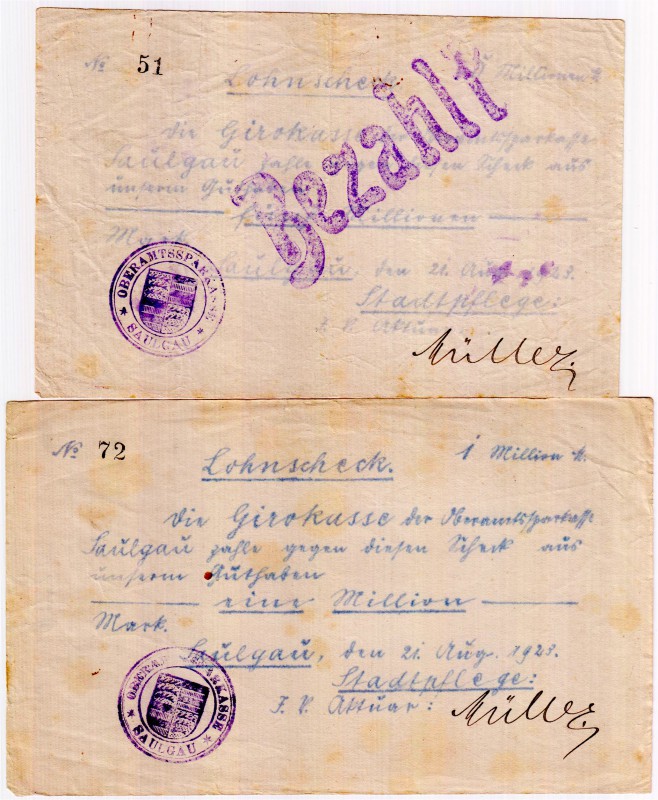 No 51
Lohnscheck. 5 Millionen M.
Die Girokasse der Oberamtssparkasse
Saulgau zahle gegen diesen Scheck aus
unserm Guthaben
fünf Millionen
Mark.
Saulgau, den 21. Aug. 1923.
Stadtpflege:
F. V. Aktuar:
Müller.
Bezahlt
OBERAMTSSPARKASSE
* SAULGAU *
No 72
Lohnscheck. 1 Million M.
Die Girokasse der Oberamtssparkasse
Saulgau zahle gegen diesen Scheck aus
unserm Guthaben
eine Million
Mark.
Saulgau, den 21. Aug. 1923.
Stadtpflege:
F. V. Aktuar: Müller.
OBERAMTSSPARKASSE
* SAULGAU *